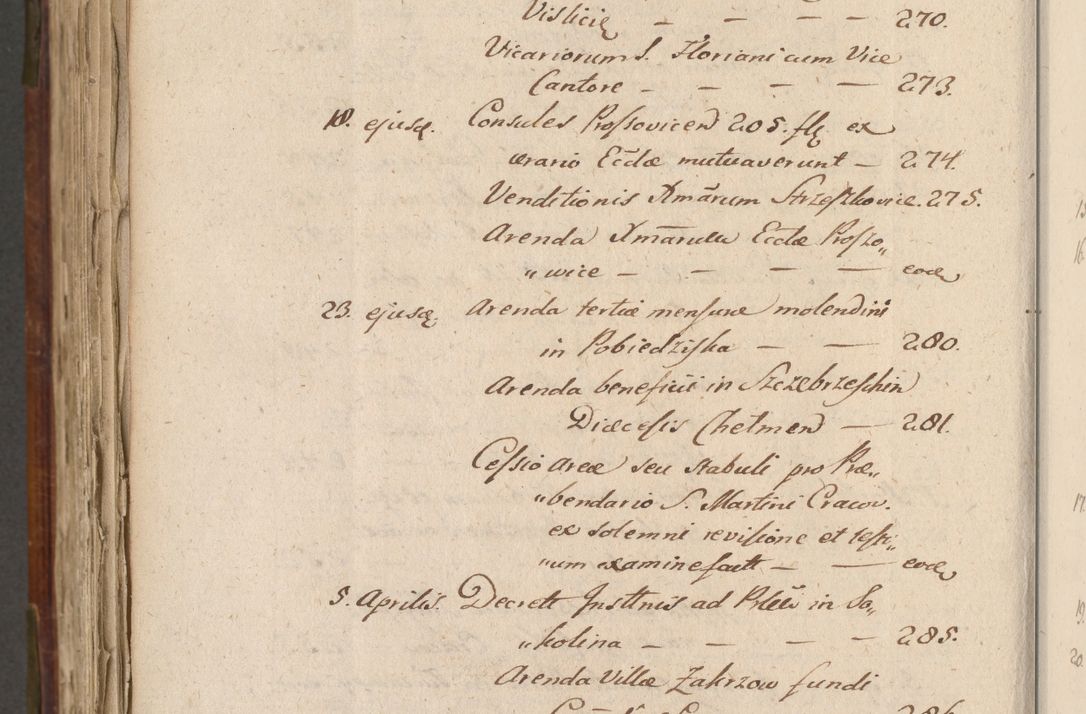 Vislicię — — — — 270.
Vicariorum S. Floriani cum Vice
Cantore — — — — 273.
18. ejusq. Consules Prossovicen 205. flę ex
ærario Eccłæ mutuaverunt — 274.
Venditionis Xmārum Strzeszkovice. 275.
Arenda Xmārum Eccłæ Proszo„
„wice — — — eode
23. ejusq. Arenda tertiæ mensuræ molendini
in Pobiedziska — — 280.
Arenda beneficii in Szczebrzeschin
Diæcesis Chelmen — 281.
Cessio areæ seu stabuli pro Præ„
„bendario S. Martini Cracov.
ex solemni revisione et testi„
„um examine factt — — eode
5. Aprilis. Decrett Insttnis ad Pttū in So„
„kolina — — — — 285.
Arenda Villæ Zakrzow fundi
286.